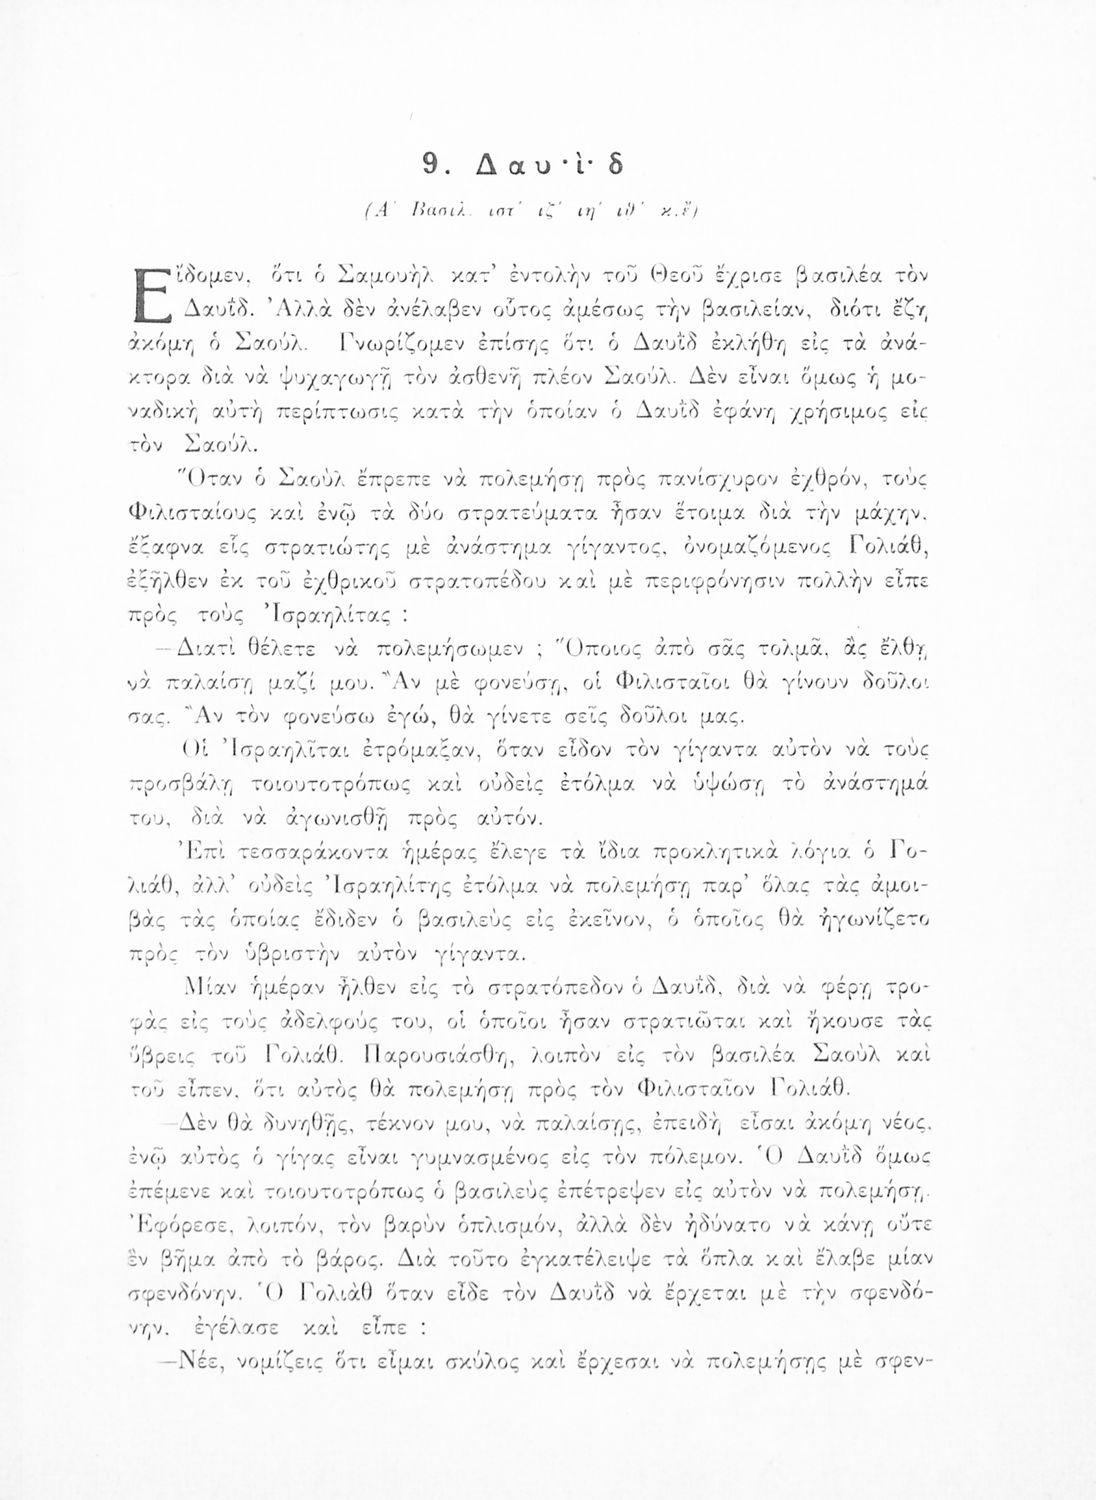 9. Δαυῒδ
(Α΄ Βασιλ. ιστ΄ ιζ΄ ιη΄ ιθ΄ κ.ἑ)
Εἴδομεν, ὅτι ὁ Σαμουὴλ κατ’ ἐντολὴν τοῦ Θεοῦ ἔχρισε βασιλέα τὸν
Δαυΐδ. Ἀλλὰ δὲν ἀνέλαβεν οὗτος ἀμέσως τὴν βασιλείαν, διότι ἔζη
ἀκόμη ὁ Σαούλ. Γνωρίζομεν ἐπίσης ὅτι ὁ Δαυῒδ ἐκλήθη εἰς τὰ ἀνά-
κτορα διὰ νὰ ψυχαγωγῇ τὸν ἀσθενῆ πλέον Σαούλ. Δὲν εἶναι ὅμως ἡ μο-
ναδικὴ αὐτὴ περίπτωσις κατὰ τὴν ὁποίαν ὁ Δαυῒδ ἐφάνη χρήσιμος εἰς
τὸν Σαούλ.
Ὅταν ὁ Σαοὺλ ἔπρεπε νὰ πολεμήσῃ πρὸς πανίσχυρον ἐχθρόν, τοὺς
Φιλισταίους καὶ ἐνῷ τὰ δύο στρατεύματα ἦσαν ἕτοιμα διὰ τὴν μάχην,
ἔξαφνα εἷς στρατιώτης μὲ ἀνάστημα γίγαντος, ὀνομαζόμενος Γολιάθ,
ἐξῆλθεν ἐκ τοῦ ἐχθρικοῦ στρατοπέδου καὶ μὲ περιφρόνησιν πολλὴν εἶπε
πρὸς τοὺς Ἰσραηλίτας :
—Διατὶ θέλετε νὰ πολεμήσωμεν ; Ὅποιος ἀπὸ σᾶς τολμᾶ, ἂς ἔλθῃ
νὰ παλαίσῃ μαζί μου. Ἂν μὲ φονεύσῃ, οἱ Φιλισταῖοι θὰ γίνουν δοῦλοι
σας. Ἂν τὸν φονεύσω ἐγώ, θὰ γίνετε σεῖς δοῦλοι μας.
Οἱ Ἰσραηλῖται ἐτρόμαξαν, ὅταν εἶδον τὸν γίγαντα αὐτὸν νὰ τοὺς
προσβάλῃ τοιουτοτρόπως καὶ οὐδεὶς ἐτόλμα νὰ ὑψώσῃ τὸ ἀνάστημά
του, διὰ νὰ ἀγωνισθῇ πρὸς αὐτόν.
Ἐπὶ τεσσαράκοντα ἡμέρας ἔλεγε τὰ ἴδια προκλητικὰ λόγια ὁ Γο-
λιάθ, ἀλλ’ οὐδεὶς Ἰσραηλίτης ἐτόλμα νὰ πολεμήσῃ παρ’ ὅλας τὰς ἀμοι-
βὰς τὰς ὁποίας ἔδιδεν ὁ βασιλεὺς εἰς ἐκεῖνον, ὁ ὁποῖος θὰ ἠγωνίζετο
πρὸς τὸν ὑβριστὴν αὐτὸν γίγαντα.
Μίαν ἡμέραν ἦλθεν εἰς τὸ στρατόπεδον ὁ Δαυΐδ, διὰ νὰ φέρῃ τρο-
φὰς εἰς τοὺς ἀδελφούς του, οἱ ὁποῖοι ἦσαν στρατιῶται καὶ ἤκουσε τὰς
ὕβρεις τοῦ Γολιάθ. Παρουσιάσθη, λοιπὸν εἰς τὸν βασιλέα Σαοὺλ καὶ
τοῦ εἶπεν, ὅτι αὐτὸς θὰ πολεμήσῃ πρὸς τὸν Φιλισταῖον Γολιάθ.
—Δὲν θὰ δυνηθῇς, τέκνον μου, νὰ παλαίσῃς, ἐπειδὴ εἶσαι ἀκόμη νέος,
ἐνῷ αὐτὸς ὁ γίγας εἶναι γυμνασμένος εἰς τὸν πόλεμον. Ὁ Δαυῒδ ὅμως
ἐπέμενε καὶ τοιουτοτρόπως ὁ βασιλεὺς ἐπέτρεψεν εἰς αὐτὸν νὰ πολεμήσῃ.
Ἐφόρεσε, λοιπόν, τὸν βαρὺν ὁπλισμόν, ἀλλὰ δὲν ἠδύνατο νὰ κάνῃ οὔτε
ἓν βῆμα ἀπὸ τὸ βάρος. Διὰ τοῦτο ἐγκατέλειψε τὰ ὅπλα καὶ ἔλαβε μίαν
σφενδόνην. Ὁ Γολιὰθ ὅταν εἶδε τὸν Δαυῒδ νὰ ἔρχεται μὲ τὴν σφενδό-
νην, ἐγέλασε καὶ εἶπε :
—Νέε, νομίζεις ὅτι εἶμαι σκύλος καὶ ἔρχεσαι νὰ πολεμήσῃς μὲ σφεν-